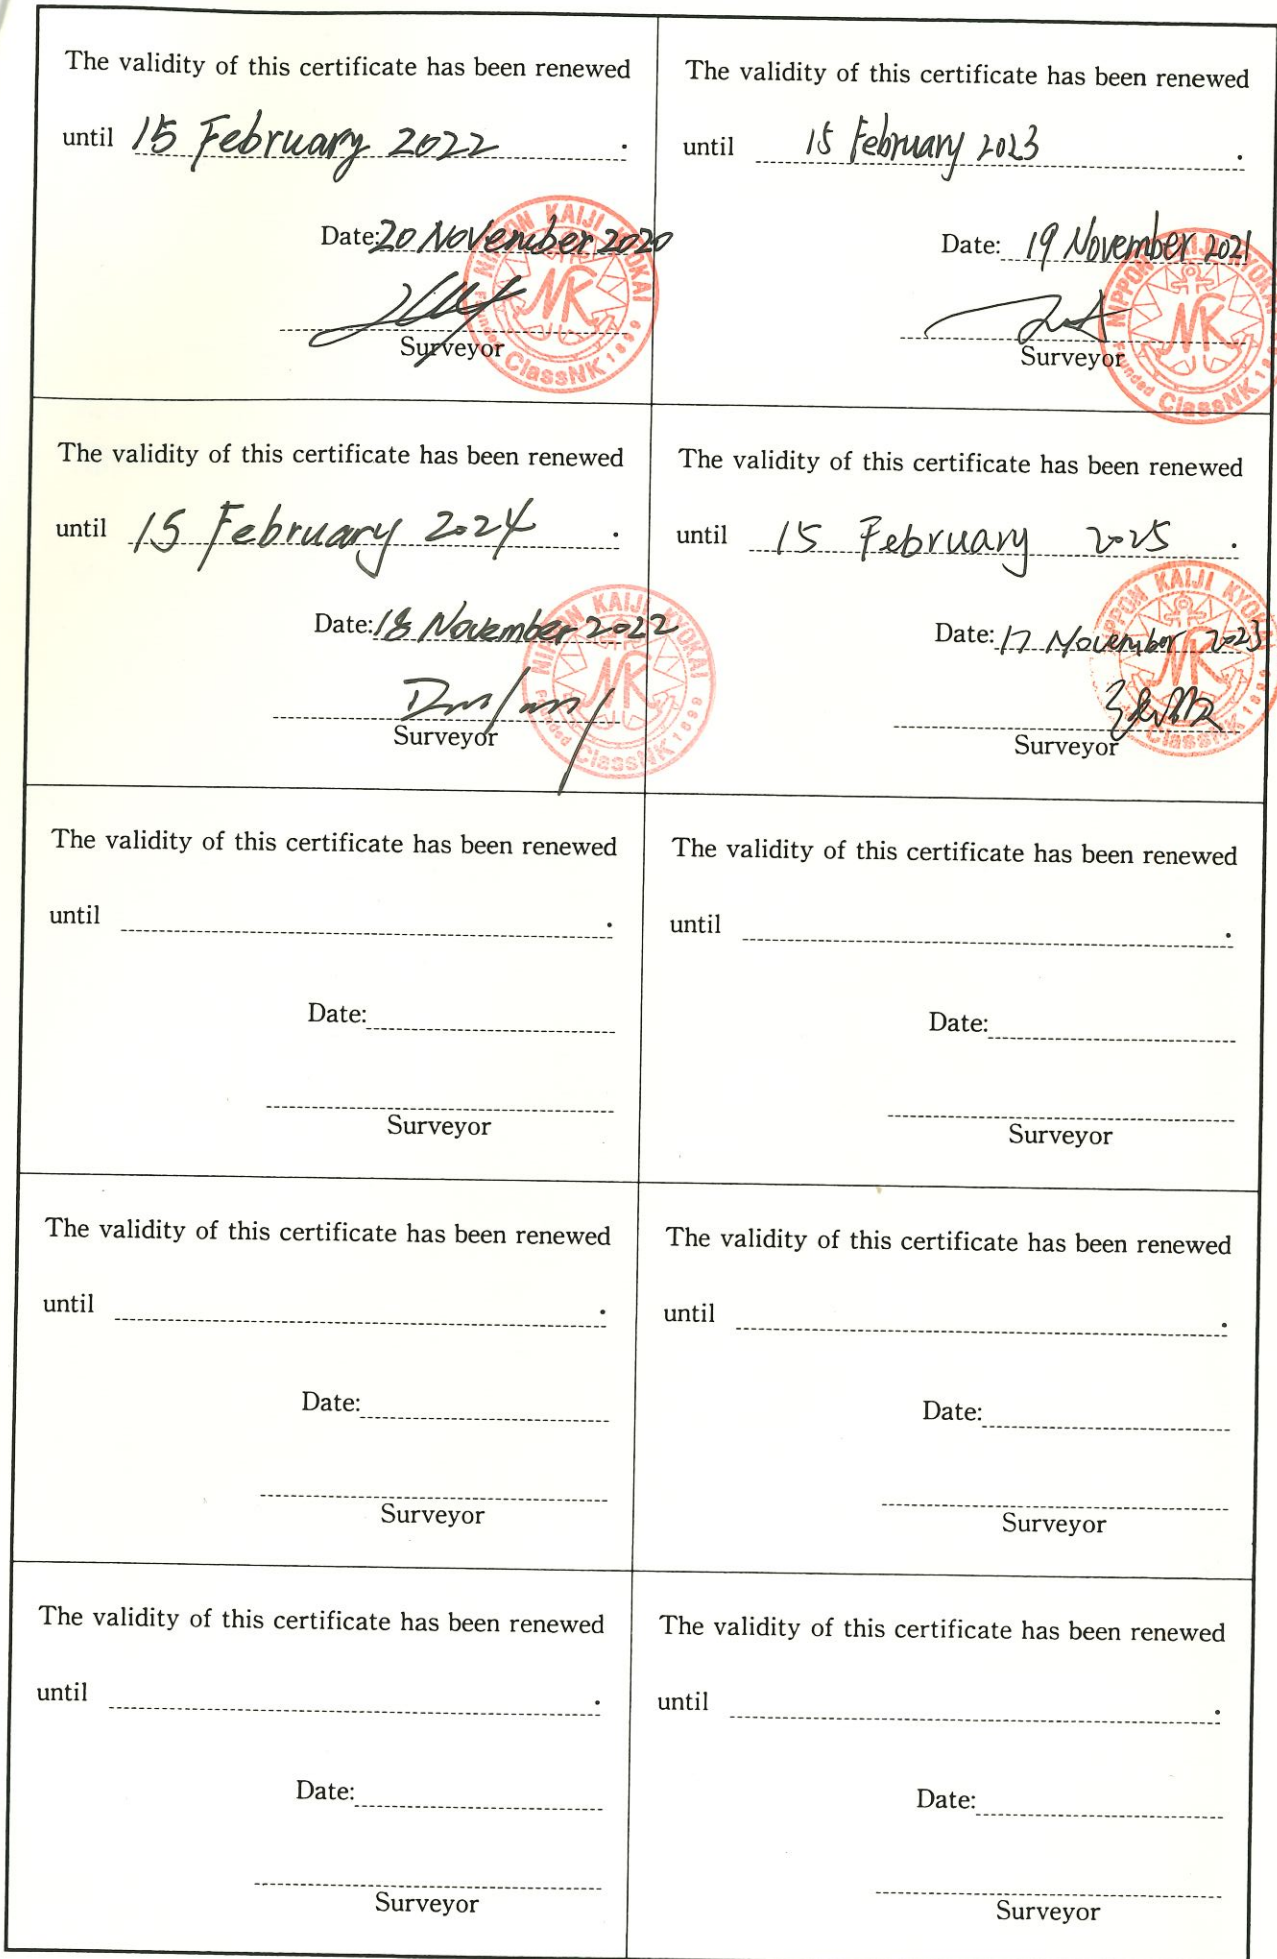 The validity of this certificate has been renewed
until 15 February 2022 .
Date: 20 November 2020
Surveyor
NIPPON KAIJI KYOKAI
NK
Founded ClassNK 1899
The validity of this certificate has been renewed
until 15 February 2023 .
Date: 19 November 2021
Surveyor
NIPPON KAIJI KYOKAI
NK
Founded ClassNK 1899
The validity of this certificate has been renewed
until 15 February 2024 .
Date: 18 November 2022
Surveyor
NIPPON KAIJI KYOKAI
NK
Founded ClassNK 1899
The validity of this certificate has been renewed
until 15 February 2025 .
Date: 17 November 2023
Surveyor
NIPPON KAIJI KYOKAI
NK
ClassNK
The validity of this certificate has been renewed
until .
Date:
Surveyor
The validity of this certificate has been renewed
until .
Date:
Surveyor
The validity of this certificate has been renewed
until .
Date:
Surveyor
The validity of this certificate has been renewed
until .
Date:
Surveyor
The validity of this certificate has been renewed
until .
Date:
Surveyor
The validity of this certificate has been renewed
until .
Date:
Surveyor